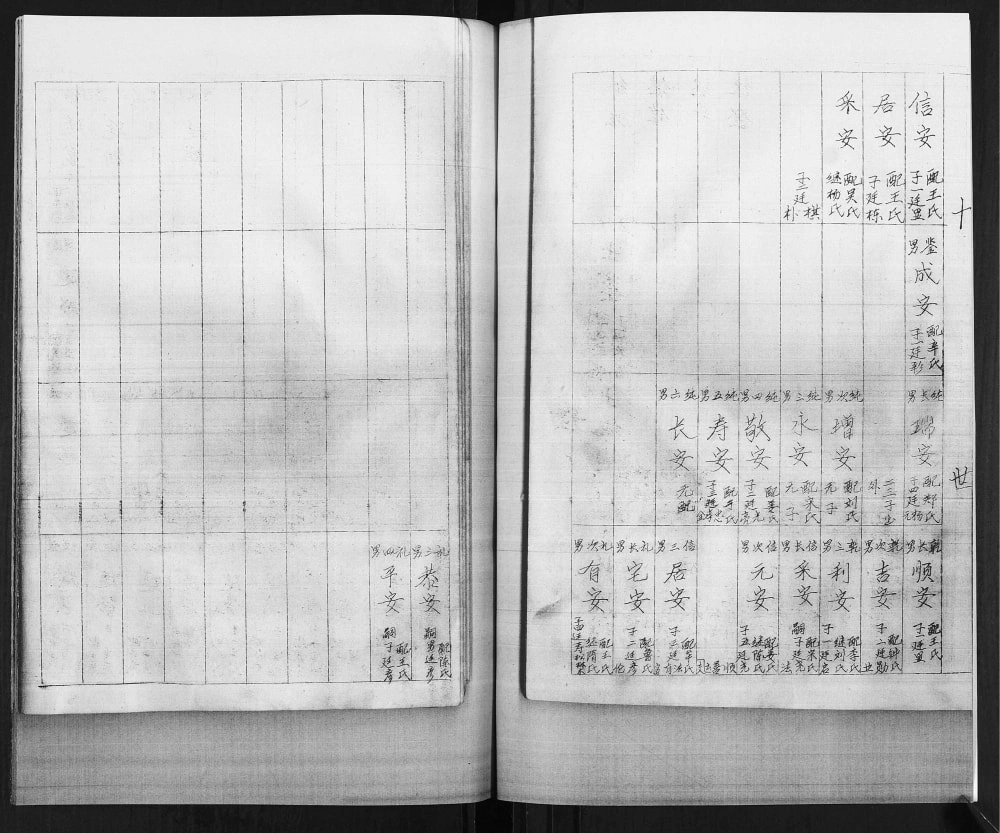 十世
信安
配王氏
子一廷显
居安
配王氏
子廷栋
采安
配吴氏
继杨氏
子二廷棋
朴
鉴男
成安
配辛氏
子一廷彩
纯长男
瑞安
配郑氏
纯次男
增安
配刘氏
元子
纯三男
永安
配宋氏
元子
纯四男
敬安
配姜氏
子二廷元
亮
纯五男
寿安
配于氏
纯六男
长安
元配
乾长男
顺安
配王氏
子一廷显
乾次男
吉安
配钟氏
子二廷勋
业
乾三男
利安
配李氏
继刘氏
子一廷君
信长男
采安
配吴氏
嗣子廷亮
信次男
元安
配姜氏
继陈氏
子五廷亮
法
信三男
居安
配牟氏
礼长男
宅安
配曹氏
子二廷彦
伦
礼次男
有安
配王氏
继隋氏
礼三男
恭安
配陈氏
嗣男廷彦
礼四男
平安
配王氏
嗣子廷彦